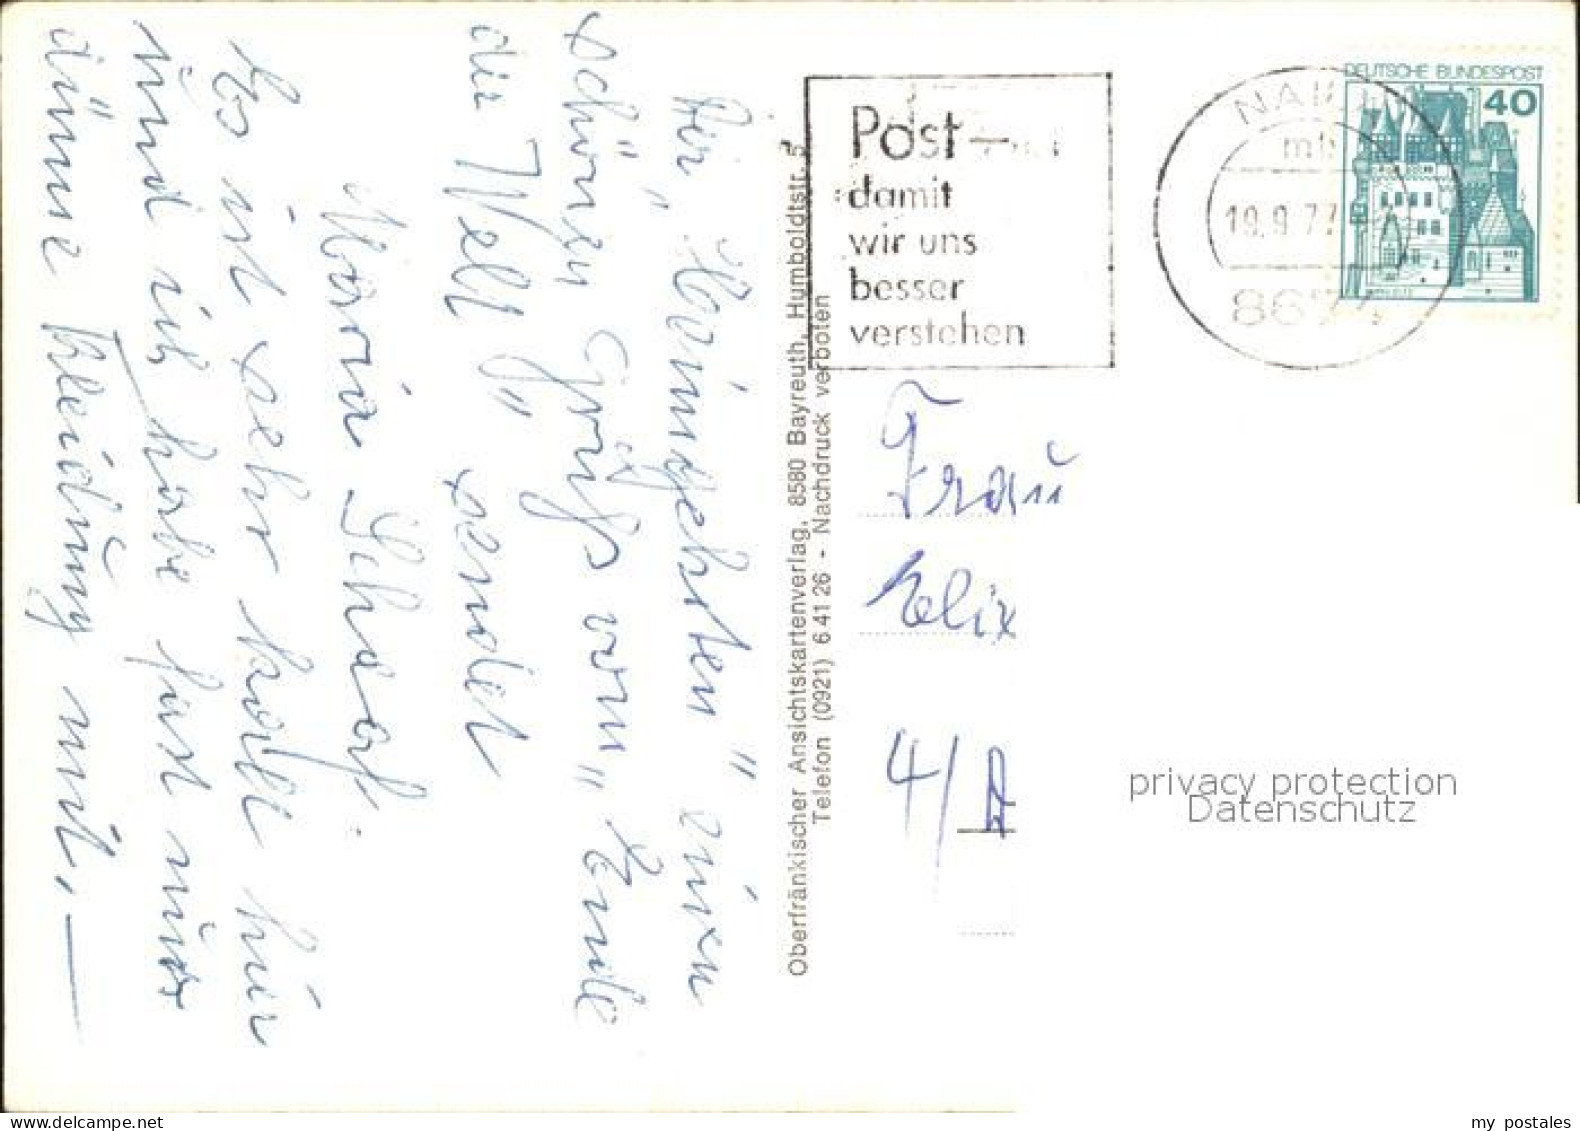 Der "Daheimgebliebenen" einen
schönen Gruß vom "Ende
der Welt" sendet
Maria Scharf.
Es ist sehr kalt hier
und ich habe fast nur
dünne Kleidung mit. —
Oberfränkischer Ansichtskartenverlag, 8580 Bayreuth, Humboldtstr. 5
Telefon (0921) 6 41 26 - Nachdruck verboten
Post –
damit
wir uns
besser
verstehen
19.9.77
DEUTSCHE BUNDESPOST
40
Frau
4/A
privacy protection
Datenschutz
my postales